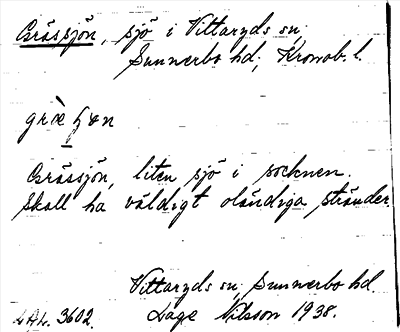 Grässjön, sjö i Vittaryds sn,
Sunnerbo hd, Kronob. l.
Grässjön, liten sjö i socknen.
Skall ha väldigt oländiga stränder.
Vittaryds sn, Sunnerbo hd
L.A.L. 3602. Nilsson 1938.